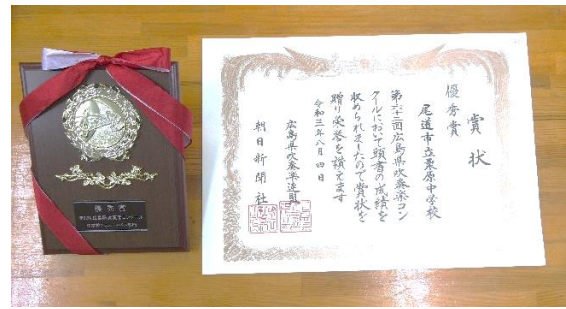 賞状
優秀賞
尾道市立栗原中学校
第六十二回広島県吹奏楽コン
クールにおいて頭書の成績を
収められましたので賞状を
贈り栄誉を讃えます
令和三年八月四日
広島県吹奏楽連盟
朝日新聞社
優秀賞